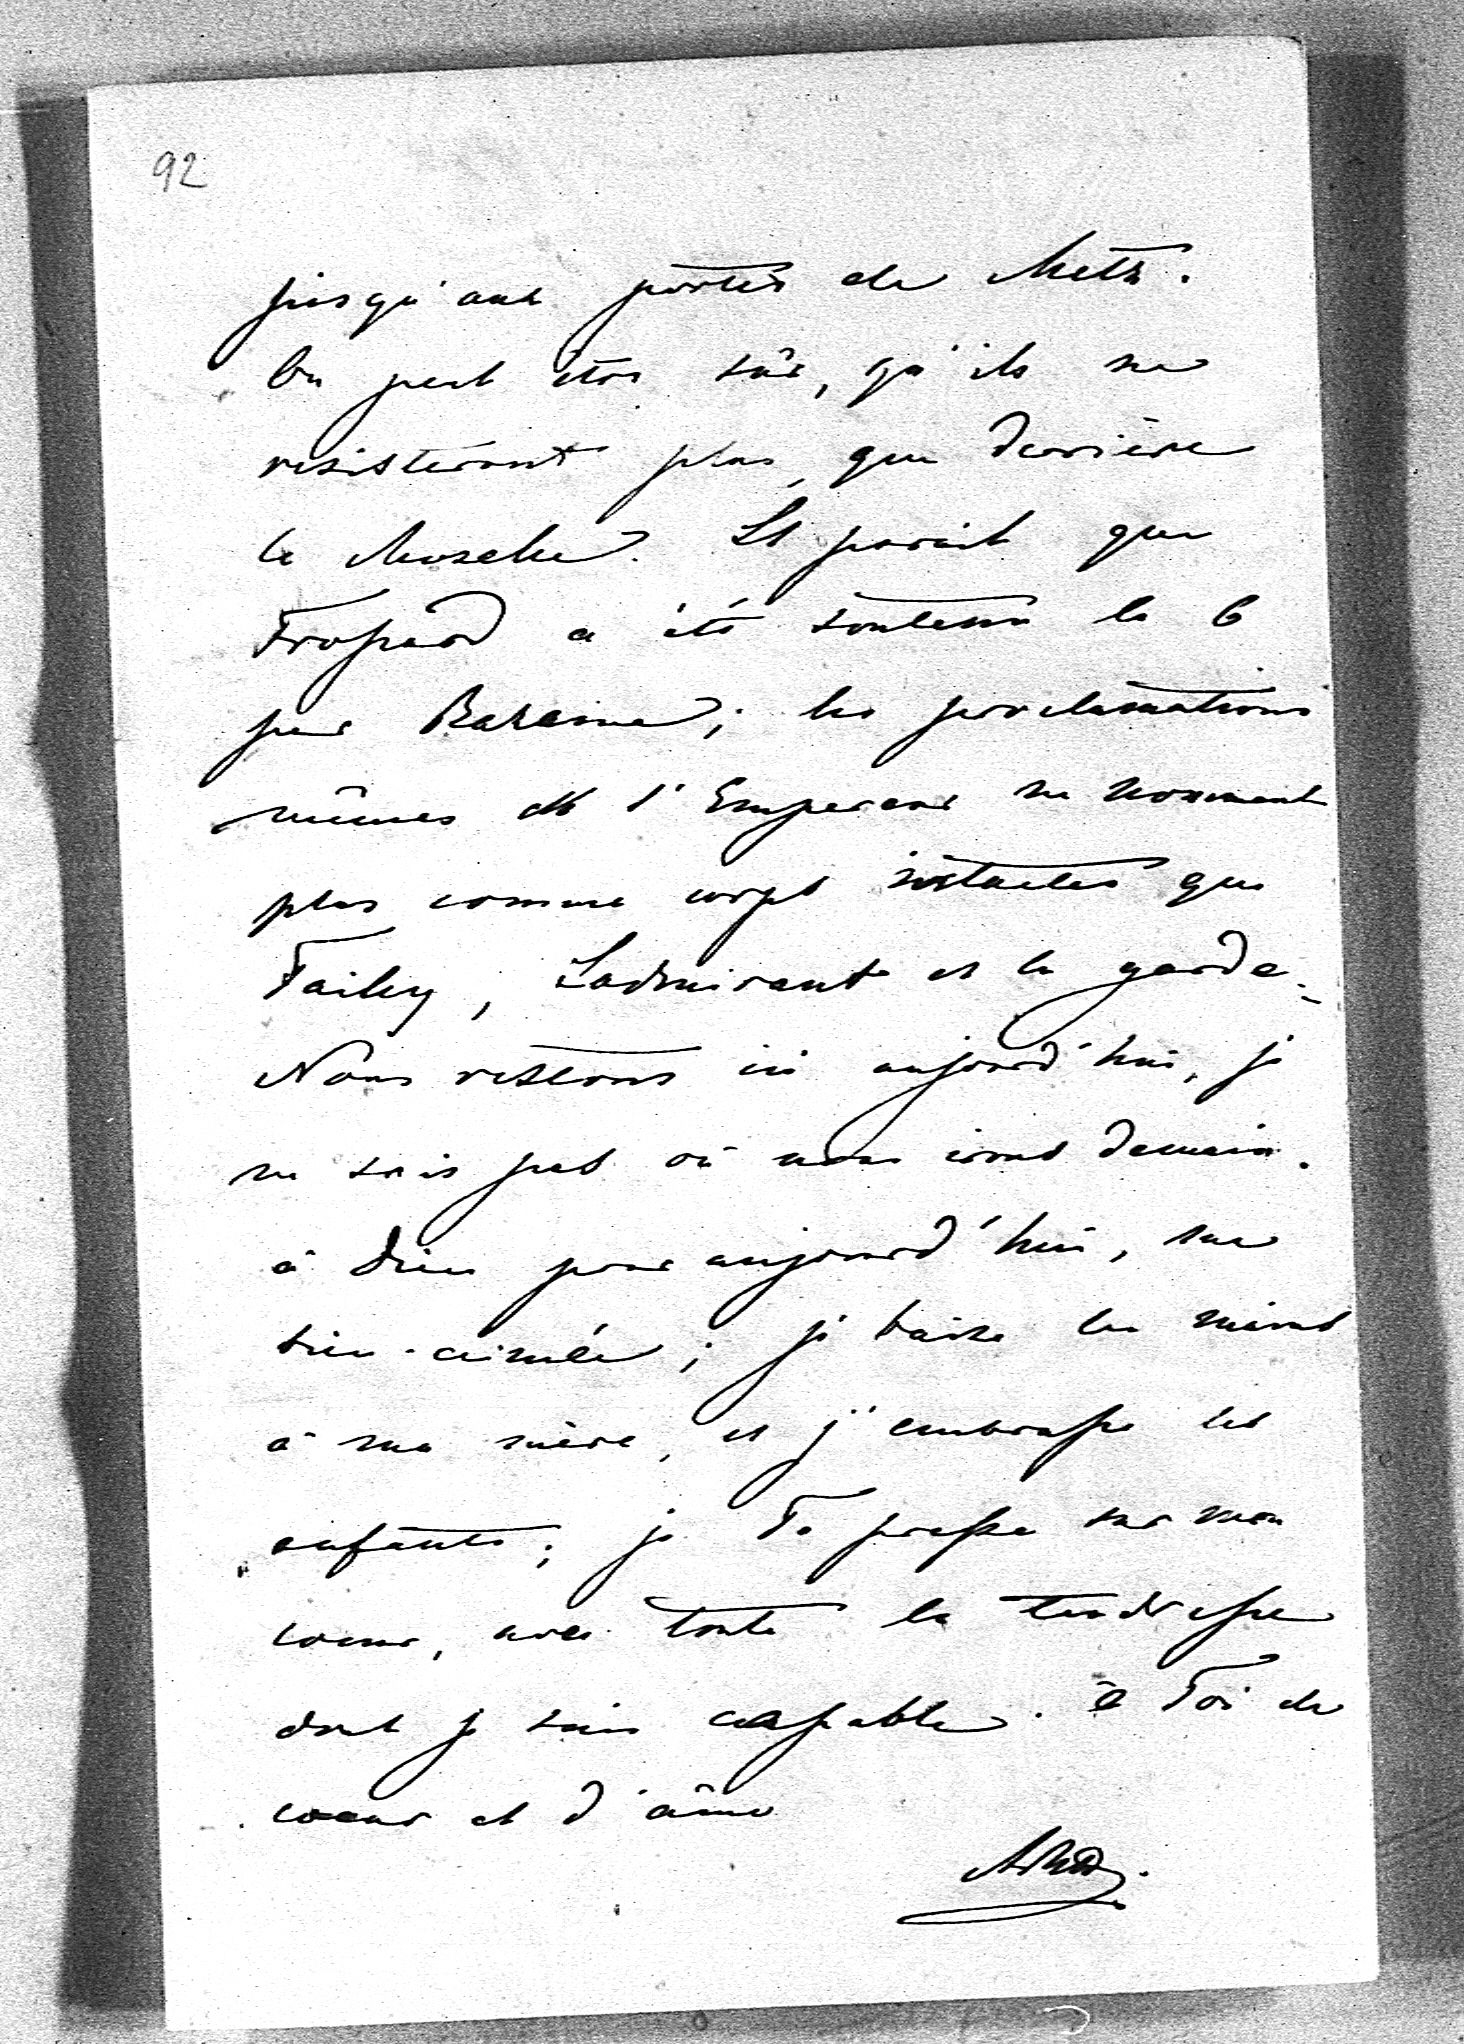 92
jusqu'aux portes de Metz.
On peut être sûr, qu'ils ne
resisteront plus, que derrière
la Moselle. Il parait que
Frossard a été soutenu le 6
par Bazaine; les proclamations
mêmes de l'Empereur ne nomment
plus comme corps intactes que
Failly, Ladmirault et la garde.
Nous restons ici aujourd'hui, je
ne sais pas où nous irons demain.
à Dieu pour aujourd'hui, ma
bien-aimée; je baise les mains
à ma mère, et j'embrasse les
enfants; je Te presse sur mon
coeur, avec toute la tendresse
dont je suis capable. à Toi de
coeur et d'âme